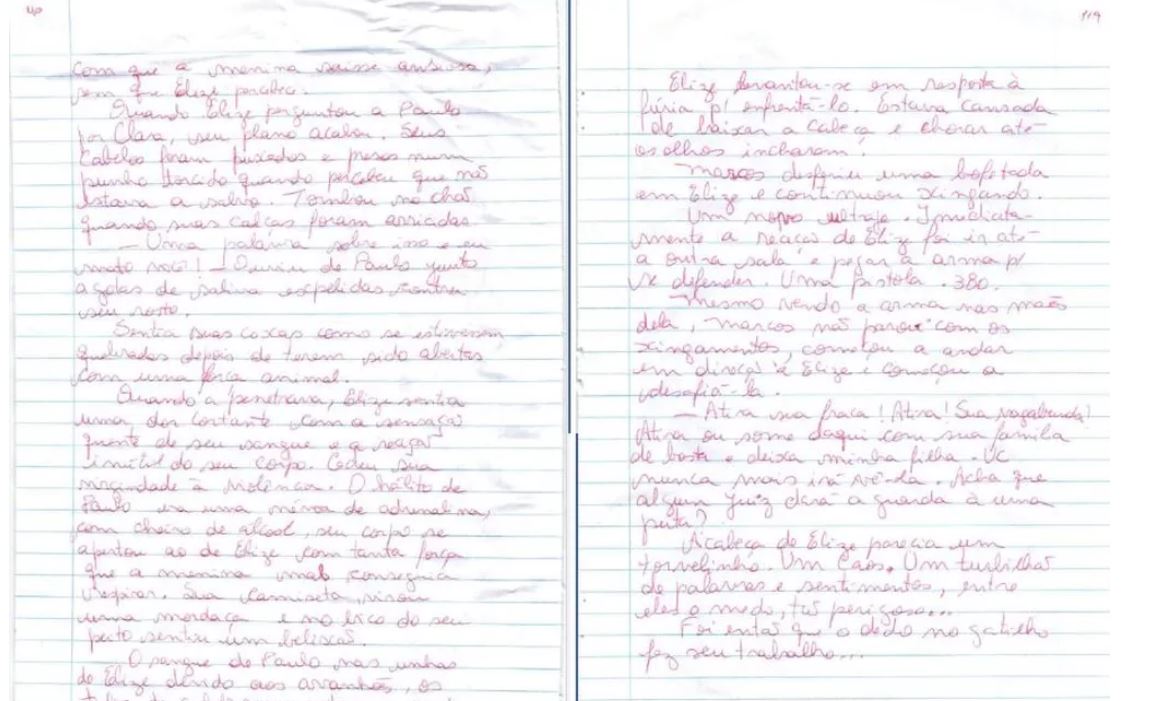 119
com que a menina saísse ansiosa,
sem que Elize perceba.
Quando Elize perguntou a Paulo
por Clara, seu plano acabou. Seus
cabelos foram puxados e presos num
punho torcido quando percebeu que não
estava a salvo. Tombou no chão
quando suas calças foram arriadas
— Uma palavra sobre isso e eu
mato você! — Ouviu de Paulo junto
a gotas de saliva expelidas contra
seu rosto.
Sentia suas coxas como se estivessem
quebradas depois de terem sido abertas
com uma força animal.
Quando a penetrava, Elize sentia
uma dor cortante com a sensação
quente de seu sangue e a reação
inútil do seu corpo. Cedeu sua
virgindade à violência. O hálito de
Paulo era uma névoa de adrenalina,
com cheiro de álcool, seu corpo se
apertou ao de Elize com tanta força
que a menina mal conseguia
respirar. Sua camiseta virou
uma mordaça e no bico do seu
peito sentiu um beliscão.
O sangue de Paulo nas unhas
de Elize devido aos arranhões, os
Elize levantou-se em resposta à
fúria p/ enfrentá-lo. Estava cansada
de baixar a cabeça e chorar até
os olhos incharem!
Marcos desferiu uma bofetada
em Elize e continuou xingando.
Um novo ultraje. Imediata-
mente a reação de Elize foi ir até
a outra sala e pegar a arma p/
se defender. Uma pistola .380.
Mesmo vendo a arma nas mãos
dela, Marcos não parou com os
xingamentos, começou a andar
em direção à Elize e começou a
desafiá-la.
— Atira sua fraca! Atira! Sua vagabunda!
Atira ou some daqui com sua família
de bosta e deixa minha filha. Vc
nunca mais irá vê-la. Acha que
algum juiz dará a guarda à uma
puta?
A cabeça de Elize parecia um
torvelinho. Um caos. Um turbilhão
de palavras e sentimentos, entre
eles o medo, tão perigoso...
Foi então que o dedo no gatilho
fez seu trabalho...